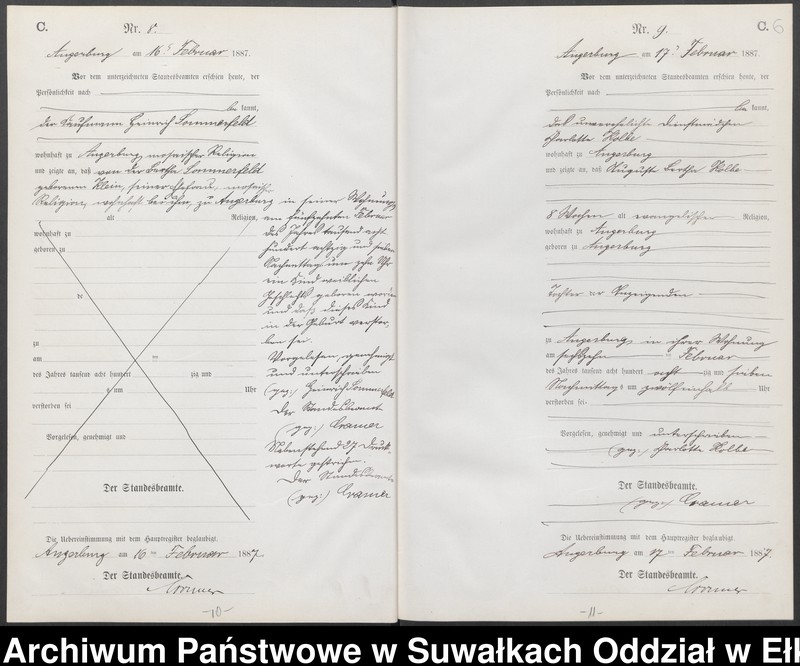 C.
Nr. 8.
Angerburg am 16ᵗ Februar 1887.
Vor dem unterzeichneten Standesbeamten erschien heute, der
Persönlichkeit nach
be kannt,
der Kaufmann Heinrich Sommerfeld
wohnhaft zu Angerburg, mosaischer Religion
und zeigte an, daß von der Bertha Sommerfeld
geborenen Klein, seiner Ehefrau, mosaischer
Religion, wohnhaft bei ihm, zu Angerburg in seiner Wohnung
alt Religion,
wohnhaft zu
geboren zu
de
zu
am ten
des Jahres tausend acht hundert zig und
s um Uhr
verstorben sei
Vorgelesen, genehmigt und
Der Standesbeamte.
am fünfzehnten Februar
des Jahres tausend acht
hundert achtzig und sieben
Nachmittag um zehn Uhr
ein Kind weiblichen
Geschlechts geboren worden
und daß dieses Kind
in der Geburt verstor-
ben sei.
Vorgelesen, genehmigt
und unterschrieben
(gez.) Heinrich Sommerfeld
Der Standesbeamte
(gez.) Cramer
Nebenstehend 27 Druck-
worte gestrichen.
Der Standesbeamte
(gez.) Cramer
Die Uebereinstimmung mit dem Hauptregister beglaubigt.
Angerburg am 16ten Februar 1887
Der Standesbeamte.
Cramer
-10-
C. 6
Nr. 9.
Angerburg am 17ᵗ Februar 1887.
Vor dem unterzeichneten Standesbeamten erschien heute, der
Persönlichkeit nach
be kannt,
das unverehelichte Dienstmädchen
Charlotte Kolbe
wohnhaft zu Angerburg
und zeigte an, daß Auguste Bertha Kolbe
8 Wochen alt evangelischer Religion,
wohnhaft zu Angerburg
geboren zu Angerburg
Tochter der Anzeigenden
zu Angerburg in ihrer Wohnung
am sechszehn ten Februar
des Jahres tausend acht hundert acht zig und sieben
Nachmittag s um zwölfeinhalb Uhr
verstorben sei
Vorgelesen, genehmigt und unterschrieben
(gez.) Charlotte Kolbe
Der Standesbeamte.
(gez.) Cramer
Die Uebereinstimmung mit dem Hauptregister beglaubigt.
Angerburg am 17ten Februar 1887.
Der Standesbeamte.
Cramer
-11-
Archiwum Państwowe w Suwałkach Oddział w Ełk